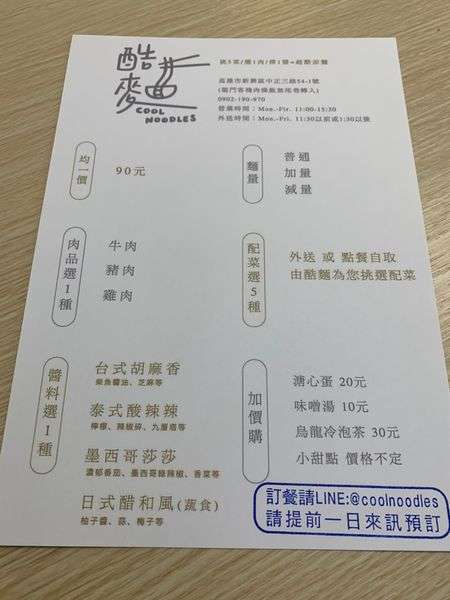 酷麵
COOL
NOODLES
挑5菜/選1肉/擇1醬=超酷涼麵
高雄市新興區中正三路54-1號
0902-190-970
營業時間：Mon.-Fir. 11:00-15:30
外送時間：Mon.-Fri. 11:30以前或1:30以後
均一價
90元
麵量
普通
加量
減量
肉品選1種
牛肉
豬肉
雞肉
配菜選5種
外送 或 點餐自取
由酷麵為您挑選配菜
醬料選1種
台式胡麻香
柴魚醬油、芝麻等
泰式酸辣辣
檸檬、辣椒碎、九層塔等
墨西哥莎莎
濃郁番茄、墨西哥綠辣椒、香菜等
日式醋和風(蔬食)
柚子醬、蒜、梅子等
加價購
溏心蛋 20元
味噌湯 10元
烏龍冷泡茶 30元
小甜點 價格不定
訂餐請LINE:@coolnoodles
請提前一日來訊預訂